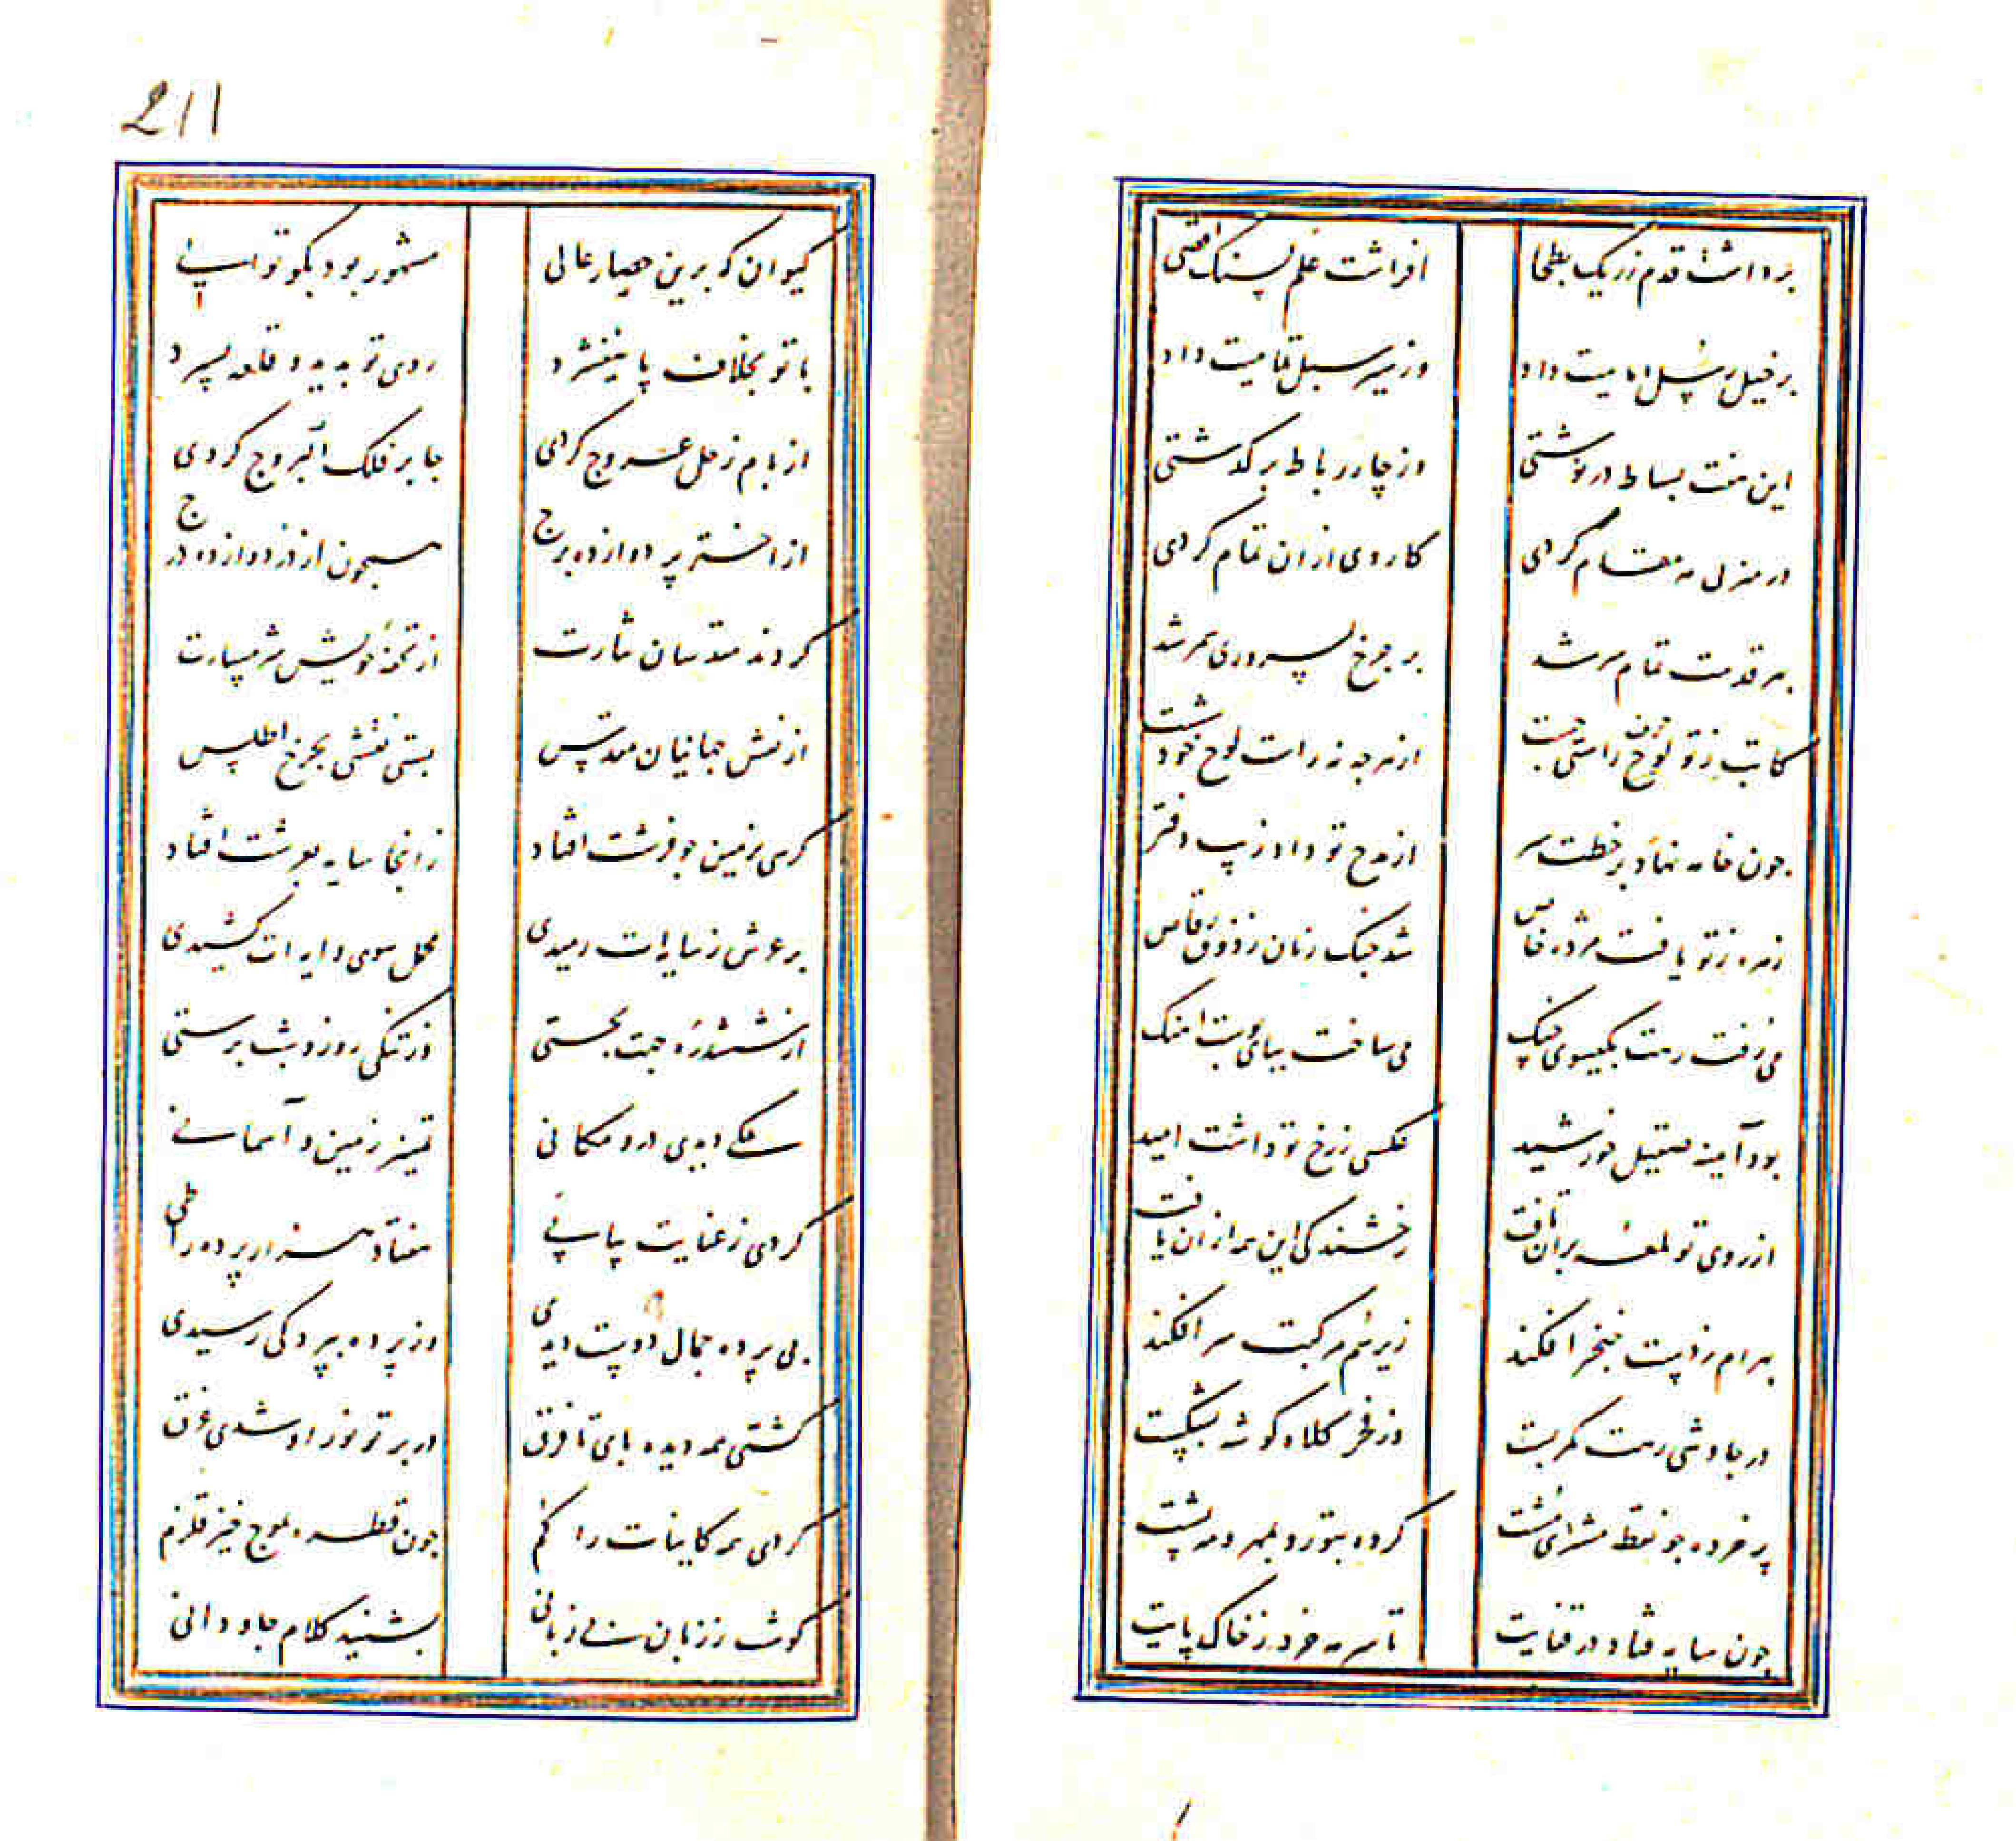 برداشت قدم ز ریک بطحا افراشت علم بسنک اقصی
بر خیل رسل امامیت داد وز نیر سبل تمامیت داد
این هفت بساط در نوشتی وز چار رباط بر کذشتی
در منزل مه مقام کردی کار وی ازان تمام کردی
بر قدمت تمام سر شد بر چرخ بسروری سمر شد
کاتب ز تو لوح حرف راستی جست از هر چه نه راست لوح خود شست
جون خامه نهاد بر خطت سر از مدح تو داد زیب دفتر
زهره ز تو یافت مژده خاص شد جنک زنان ز ذوق رقاص
می رفت رهت بکیسوی جنک می ساخت ببایبوست اهنک
بود آینه صقیل خورشید عکسی ز رخ تو داشت امید
از روی تو لمعه بران تافت رخشندکی این همه ازان یافت
بهرام ز ذیبت خنجر افکند زیر سم مرکبت سر افکند
در جاوشی رهت کمر بست وز فخر کلاه کوشه بشکست
بر خرده جو نقطه مشترای مشت کرده بتو رو بمهر و مه پشت
جون سایه فتاد در قفایت تا سرمه خرد ز خاک پایت
211
کیوان که برین حصار عالی مشهور بود بکوتوالی
با تو بخلاف پا نیفشرد روی تو بدید و قلعه بسپرد
از بام زحل عروج کردی جا بر فلک البروج کردی
از اختر پر دوازده برج همچون از در دوازده درج
کردند مقدسان نثارت از تحفه خویش شرمسارت
از نقش جهانیان مقدس بستی نقشی بجرخ اطلس
کرسی بزمین جو فرشت افتاد زانجا سایه بعرشت افتاد
بر عرش ز سایه ات رمیدی محمل سوی دایه ات کشیدی
از ششدره جهت بجستی وز تنکی روز و شب برستی
ملکی دیدی درو مکانی تمییز زمین و آسمانی
کردی ز عنایت بیابی هفتاد هزار پرده را طی
بی پرده جمال دوست دیدی وز پرده ببردکی رسیدی
کشتی همه دیده بای تا فرق در برتو نور او شدی غرق
کردی همه کاینات را کم جون قطره بموج خیز قلزم
کوشت ز زبان بی زبانی بشنید کلام جاودانی